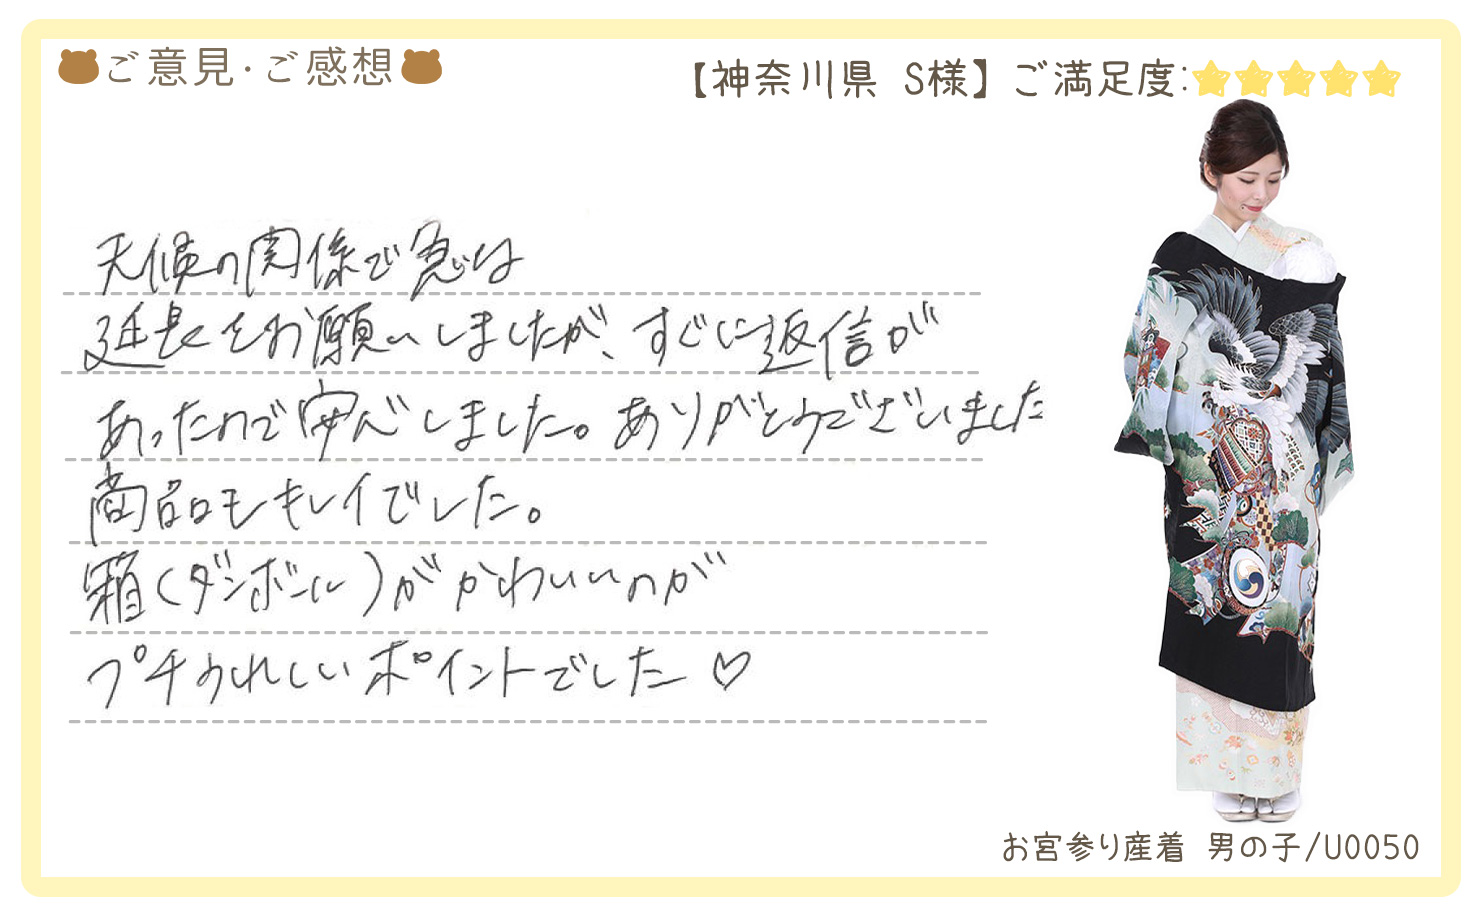 ご意見・ご感想
【神奈川県 S様】ご満足度:
天候の関係で急は
延長をお願いしましたが、すぐに返信が
あったので安心しました。ありがとうございました
商品もキレイでした。
箱(ダンボール)がかわいいのが
プチうれしいポイントでした♡
お宮参り産着 男の子/U0050